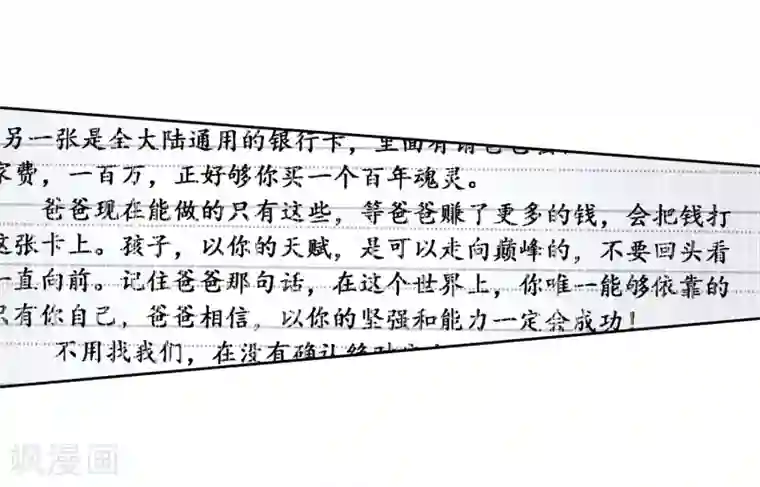 另一张是全大陆通用的银行卡，里面有
家费，一百万，正好够你买一个百年魂灵。
爸爸现在能做的只有这些，等爸爸赚了更多的钱，会把钱打
这张卡上。孩子，以你的天赋，是可以走向巅峰的，不要回头看
一直向前。记住爸爸那句话，在这个世界上，你唯一能够依靠的
只有你自己，爸爸相信，以你的坚强和能力一定会成功！
不用找我们，在没有确认
飒漫画